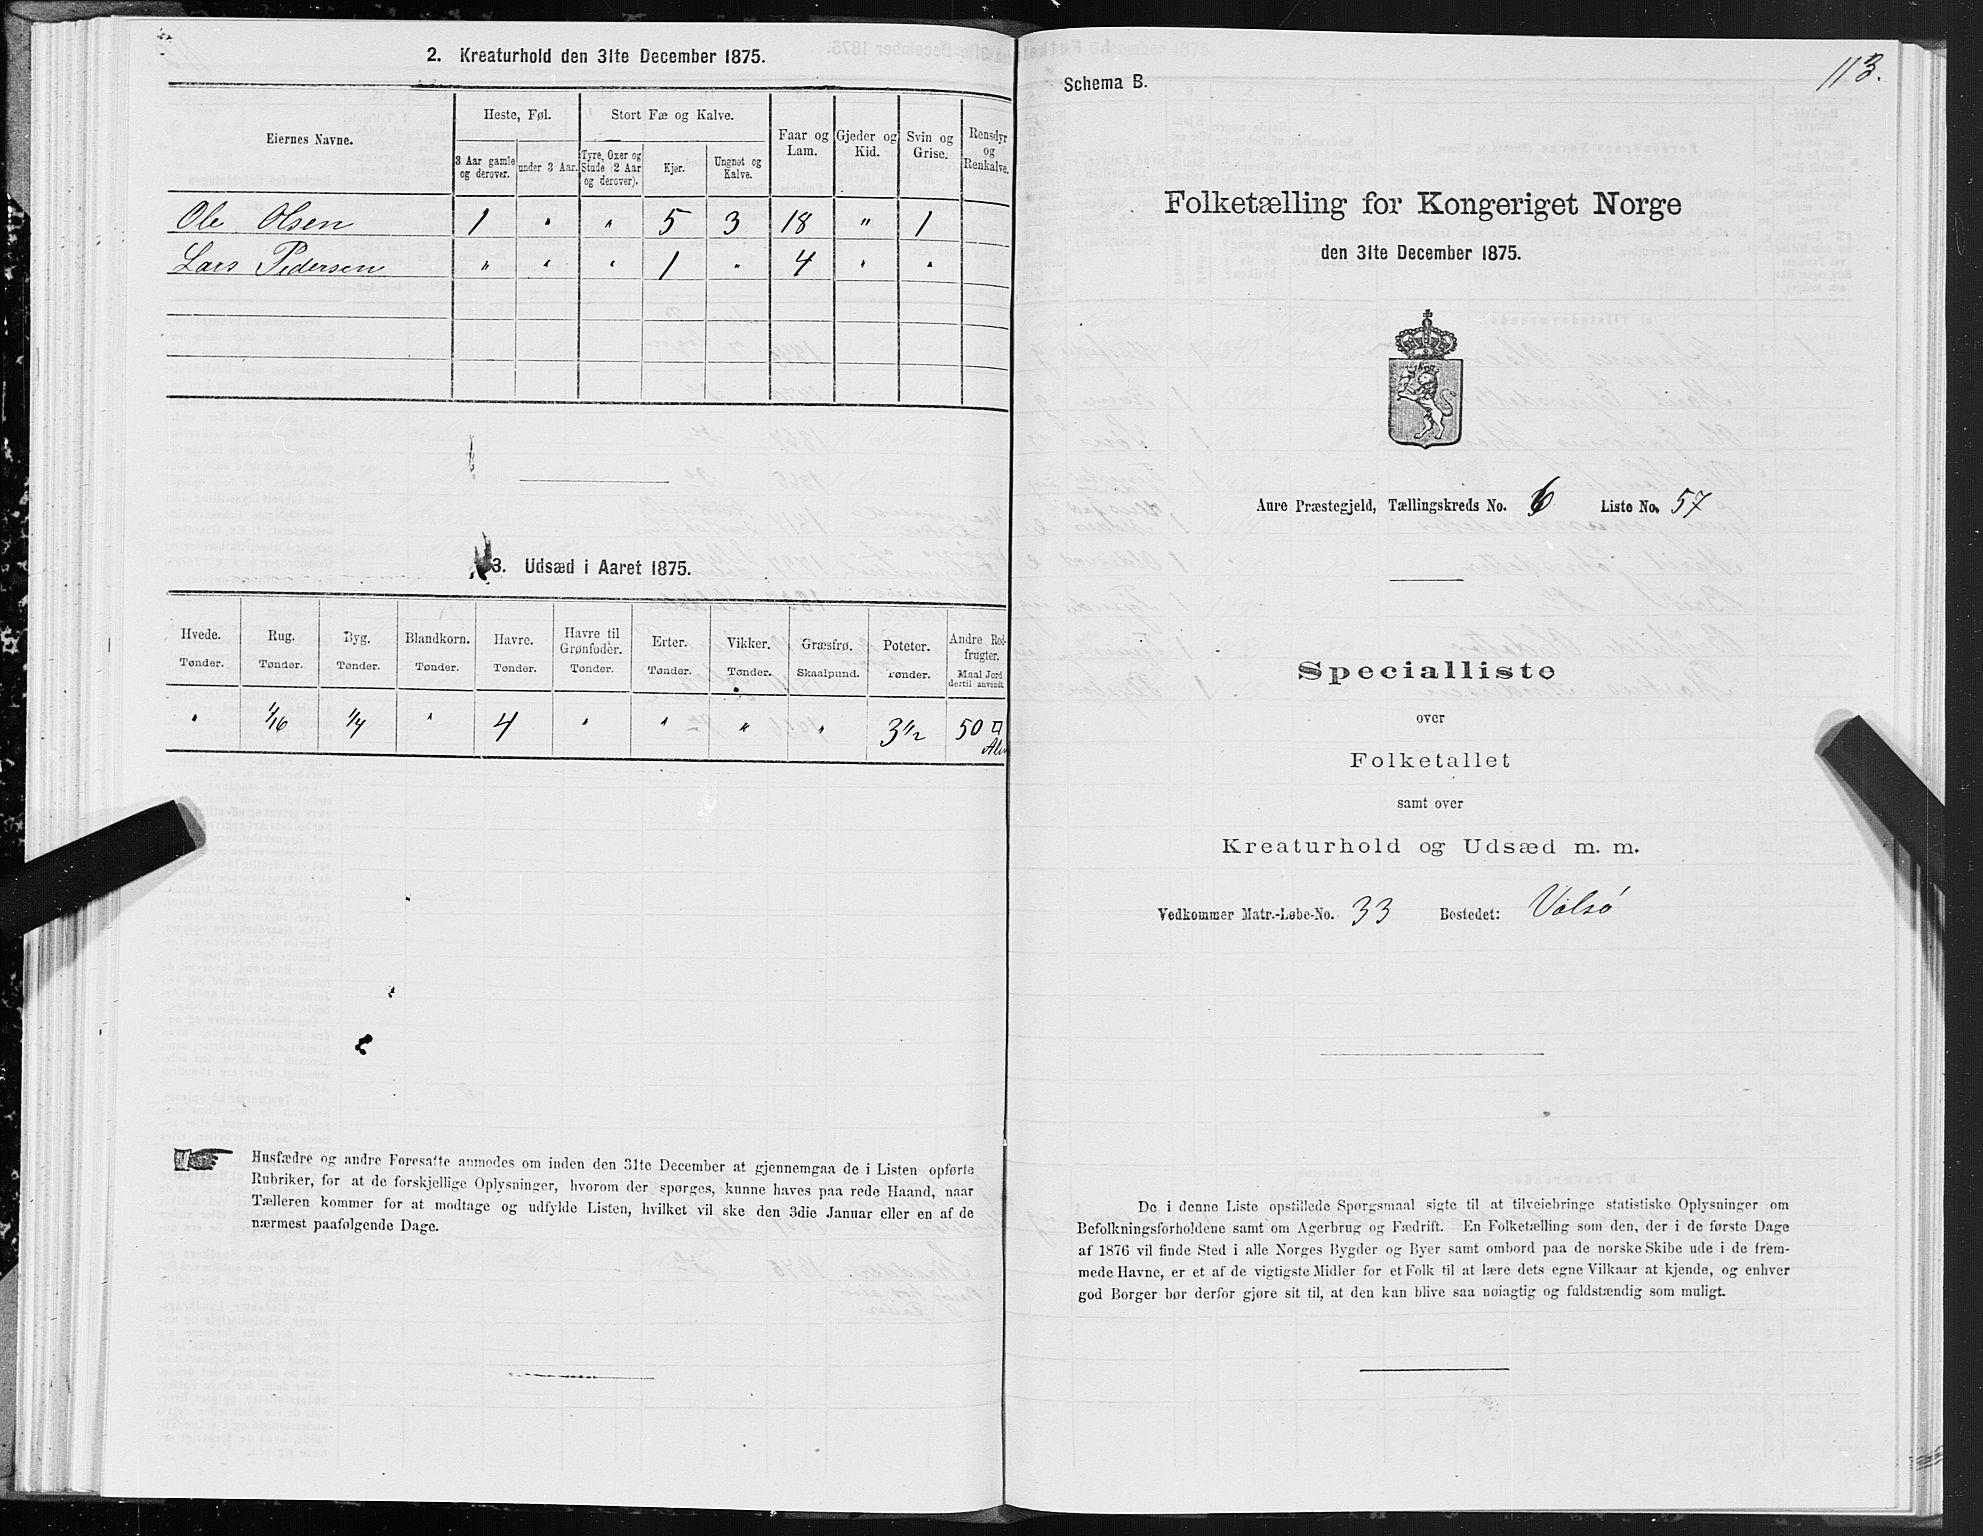 2. Kreaturhold den 31te December 1875.
Eiernes Navne.
Heste, Føl.
Stort Fæ og Kalve.
Faar og Lam.
Gjeder og Kid.
Svin og Grise.
Rensdyr og Renkalve.
3 Aar gamle og derover.
under 3 Aar.
Tyre, Oxer og Stude (2 Aar og derover).
Kjer.
Ungnet og Kalve.
Ole Olsen 1 " " 5 3 18 " 1
Lars Pedersen " " " 1 " 4 " "
3. Udsæd i Aaret 1875.
Hvede. Rug. Byg. Blandkorn. Havre. Havre til Grønfoder. Erter. Vikker. Græsfrø. Poteter. Andre Rodfrugter.
Tønder. Tønder. Tønder. Tønder. Tønder. Tønder. Tønder. Tønder. Skaalpund. Tønder. Maal Jord dertil anvendt
" 1/16 1/4 " 4 " " " " 3 1/2 50 □ Alen
Husfædre og andre Foresatte anmodes om inden den 31te December at gjennemgaa de i Listen opførte
Rubriker, for at de forskjellige Oplysninger, hvorom der spørges, kunne haves paa rede Haand, naar
Tælleren kommer for at modtage og udfylde Listen, hvilket vil ske den 3die Januar eller en af de
nærmest paafølgende Dage.
113.
Schema B.
Folketælling for Kongeriget Norge
den 31te December 1875.
Aure Præstegjeld, Tællingskreds No. 6 Liste No. 57
Specialliste
over
Folketallet
samt over
Kreaturhold og Udsæd m. m.
Vedkommer Matr.-Løbe-No. 33 Bostedet: Valsø
De i denne Liste opstillede Spørgsmaal sigte til at tilveiebringe statistiske Oplysninger om
Befolkningsforholdene samt om Agerbrug og Fædrift. En Folketælling som den, der i de første Dage
af 1876 vil finde Sted i alle Norges Bygder og Byer samt ombord paa de norske Skibe ude i de frem-
mede Havne, er et af de vigtigste Midler for et Folk til at lære dets egne Vilkaar at kjende, og enhver
god Borger bør derfor gjøre sit til, at den kan blive saa nøiagtig og fuldstændig som muligt.